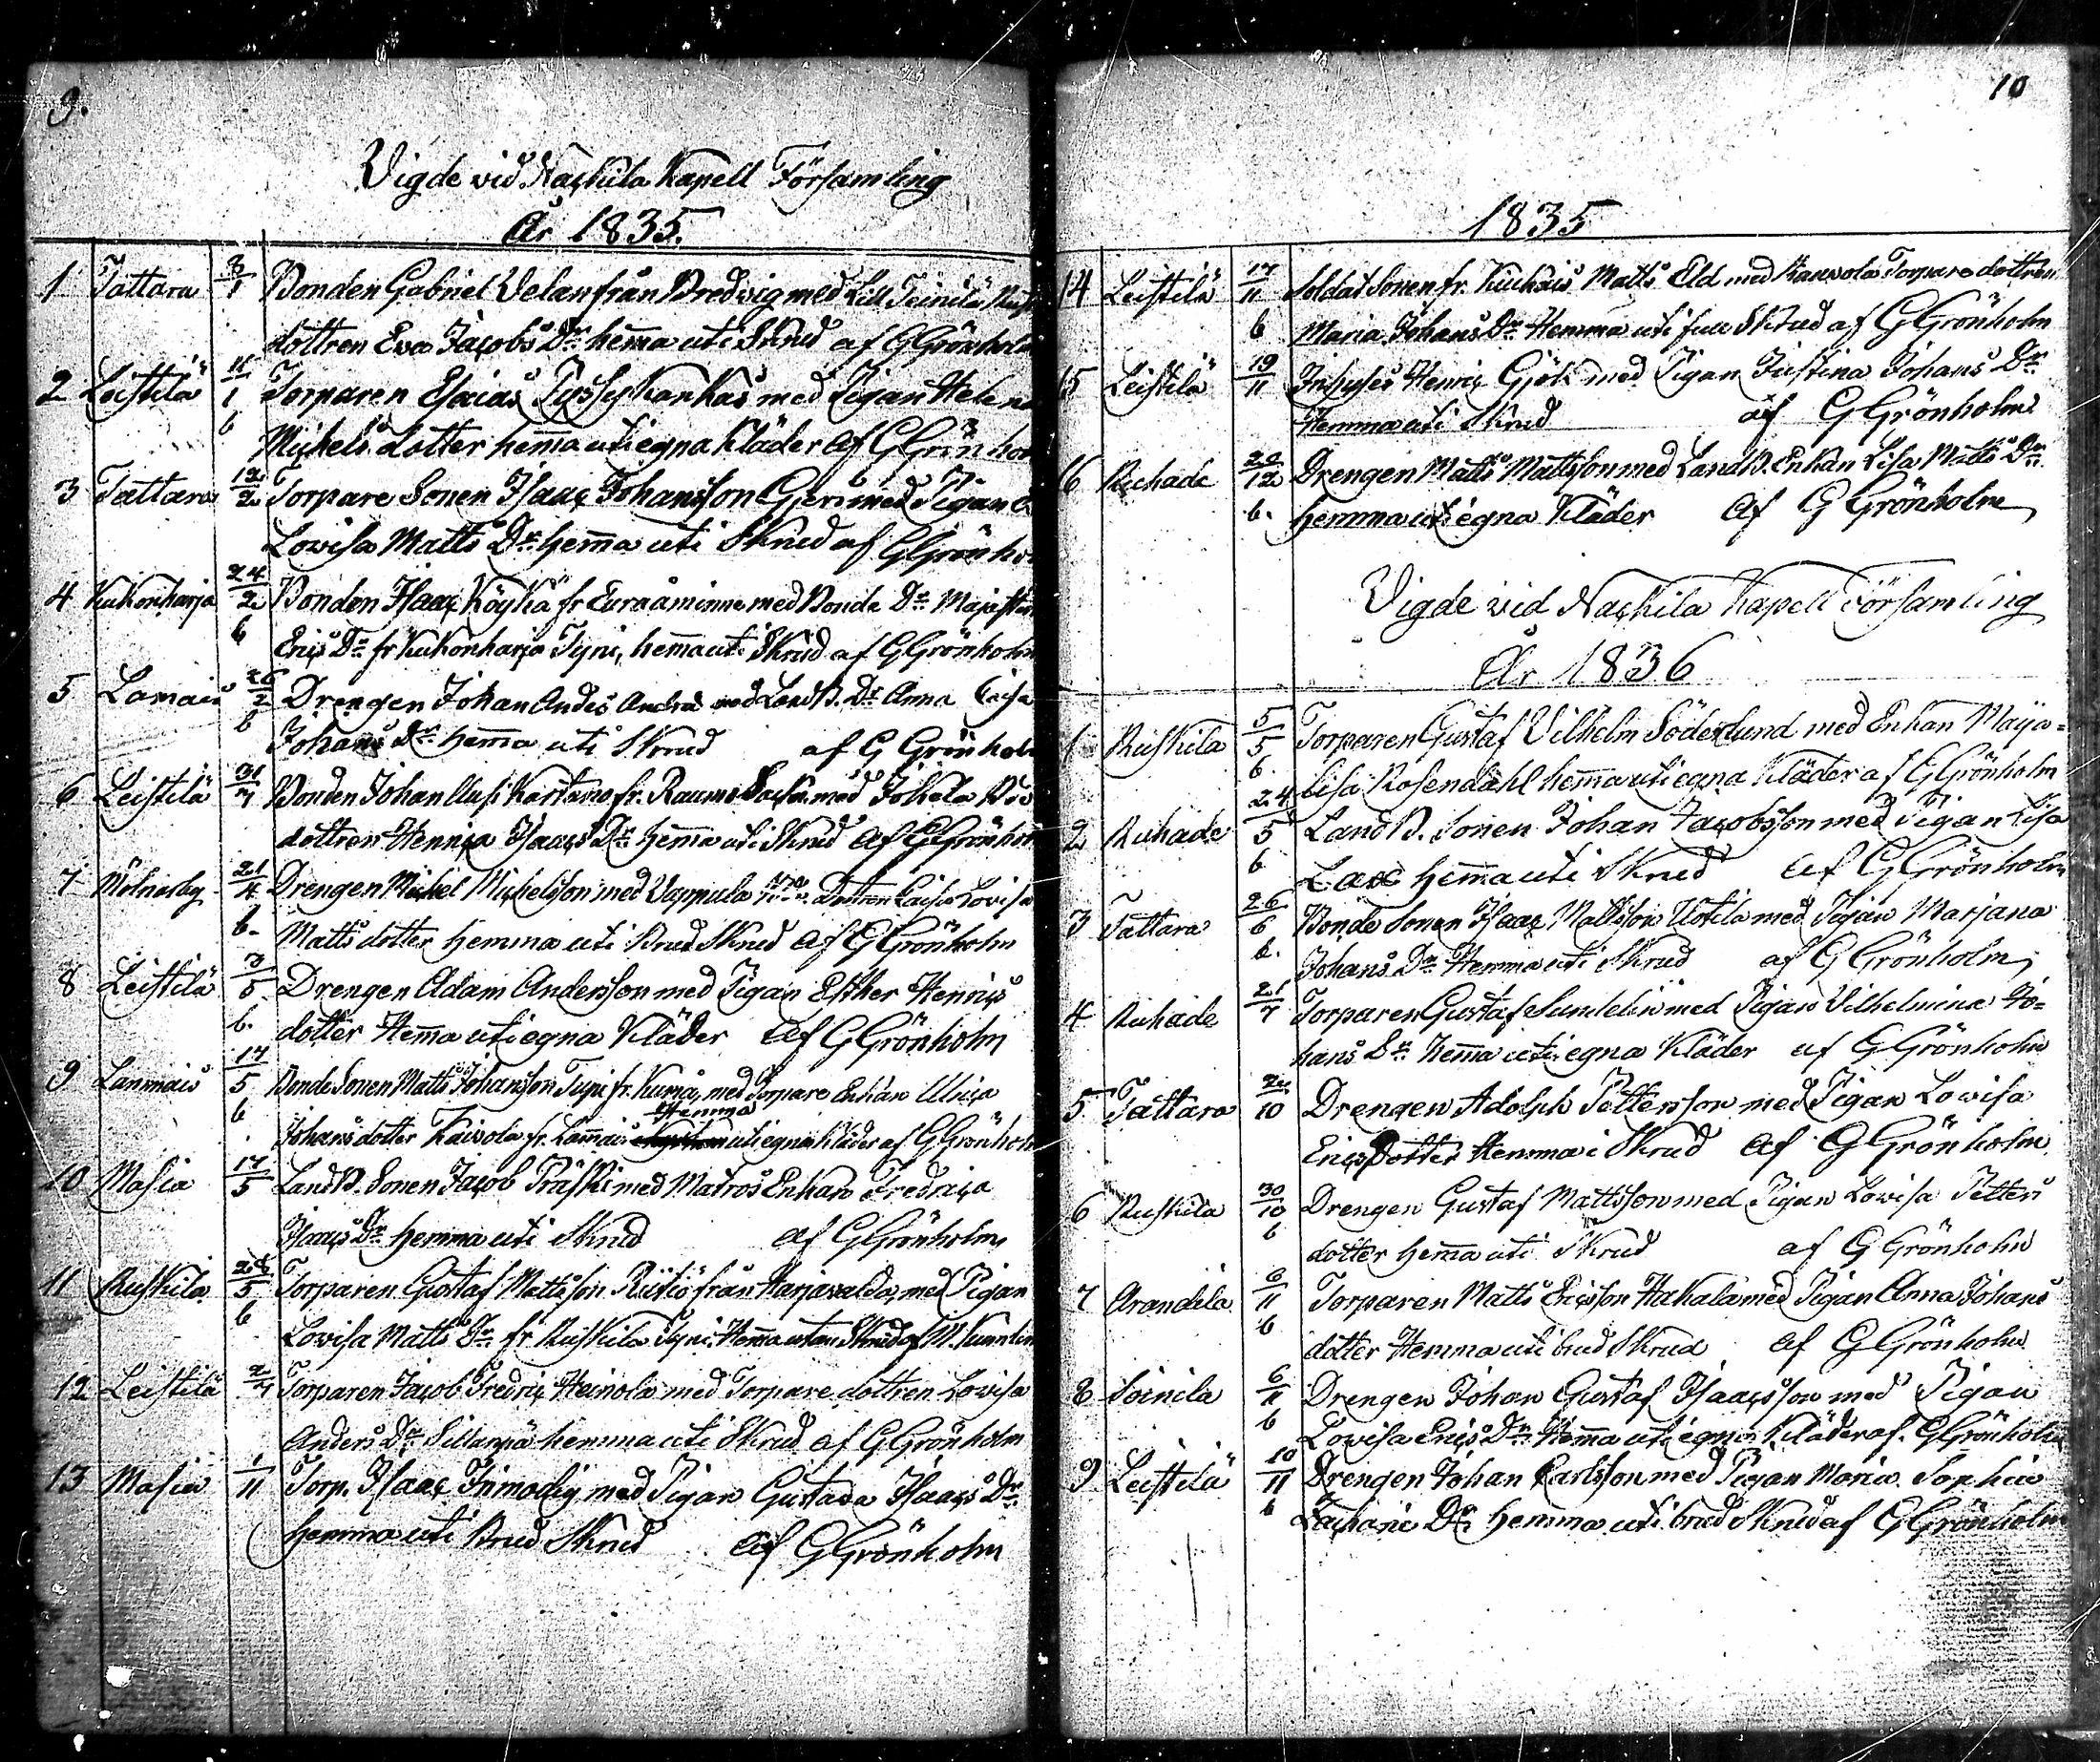 9.
Vigde vid Nackila Kapell Församling
År 1835.
1 Tattara 8/1 Bonden Gabriel Velan från Bredvig med Lill Teinilä
dottren Eva Jacobs Dr hem̄a uti Skrud af G Grönholm
2 Leistilä 11/1 Torparen Esaias Pyssykankas med Pigan Helena
b Michels dotter hem̄a uti egna Kläder af G Grönhol
3 Tattara 12/2 Torpare Sonen Isaac Johansson Gers med Pigan
Lovisa Matts Dr hem̄a uti Skrud af G Grönho
4 Kukonharja 24/2 Bonden Isaac Köykä fr Euraåminne med Bonde Dr Maja Stin
b Erics Dr fr Kukonharja Tyni, hem̄a uti Skrud af G Grönholm
5 Lamais 26/2 Drengen Johan Anders med Land B. Dr Anna Caisa
b Johans Dr hem̄a uti Skrud af G Grönholm
6 Leistilä 31/ Bonden Johan Uusi Kartano fr. Raumo Socken med Jokela
dottren Henrica Isaacs Dr hem̄a uti Skrud af G Grönhol
7 Mölnarby 21/4 Drengen Michel Michelsson med Vappula Dottren Caisa Lovisa
b. Matts dotter hemma uti Brud Skrud af G Grönholm
8 Leistilä 3/5 Drengen Adam Andersson med Pigan Esther Henrics
b. dotter Hem̄a uti egna Kläder af G Grönholm
9 Lammais 17/5 Bonde Sonen Matts Johansson Tyni fr. Kumå, med Torpare Enkan Ulrica
Hemma
b Johans dotter Kaisola fr. Lam̄ais uti egna kläder af G Grönholm
10 Masia 17/5 Land B. Sonen Jacob Präski med Matros Enkan Fredrica
Isaacs Dr hemma uti Skrud af G Grönholm
11 Ruskila 28/5 Torparen Gustaf Mattsson Ristiö från Harjavalda, med Pigan
b Lovisa Matts Dr fr Ruskila Tyni. Hem̄a utan Skrud af M.
12 Leistilä 2/7 Torparen Jacob Fredric Heinola med Torpare dottren Lovisa
Anders Dr Sillanpä hemma uti Skrud af G Grönholm
13 Masia 1/11 Torp. Isaac Frimodig med Pigan Gustava Isaacs Dr
hemma uti Brud Skrud af G Grönholm
10
1835
14 Leistilä 17/11 Soldat Sonen fr. Kiukais Matts Eld med Torpare dottren
b Maria Johans Dr Hemma uti full Skrud af G Grönholm
15 Leistilä 19/11 Inhyses Henric Gjök med Pigan Justina Johans Dr
Hemma uti Skrud af G Grönholm
16 Ruhade 29/12 Drengen Matts Mattsson med Land B. Enkan Lisa Matts Dr
b. hemma uti egna Kläder af G Grönholm
Vigde vid Nackila Kapell Församling
År 1836
1 Ruskila 5/5 Torparen Gustaf Vilhelm Söderlund med Enkan Maija=
b. lisa Rosendahl hem̄a uti egna Kläder af G Grönholm
2 Ruhade 24/5 Land B. Sonen Johan Jacobsson med Pigan Lisa
b Lax hem̄a uti Skrud af G Grönholm
3 Tattara 26/6 Bonde Sonen Isaac Mattsson Uotila med Pigan Marjana
b. Johans Dr Hemma uti Skrud af G Grönholm
4 Ruhade 21/7 Torparen Gustaf Sundelin med Pigan Vilhelmina Jo=
hans Dr hem̄a uti egna Kläder af G Grönholm
5 Tattara /10 Drengen Adolph Pettersson med Pigan Lovisa
Erics Dotter Hemma i Skrud af G Grönholm
6 Ruskila 30/10 Drengen Gustaf Mattsson med Pigan Lovisa Petters
b dotter hem̄a uti Skrud af G Grönholm
7 Arandila 6/11 Torparen Matts Ericsson Hakala med Pigan Anna Johans
b dotter Hemma uti brud Skrud af G Grönholm
8 Soinila 6/11 Drengen Johan Gustaf Isaacsson med Pigan
b Lovisa Erics Dr Hem̄a uti egna Kläder af. G Grönholm
9 Leistilä 10/11 Drengen Johan Carlsson med Pigan Maria Sophia
b Zacharie Dr hemma uti brud Skrud af G Grönholm